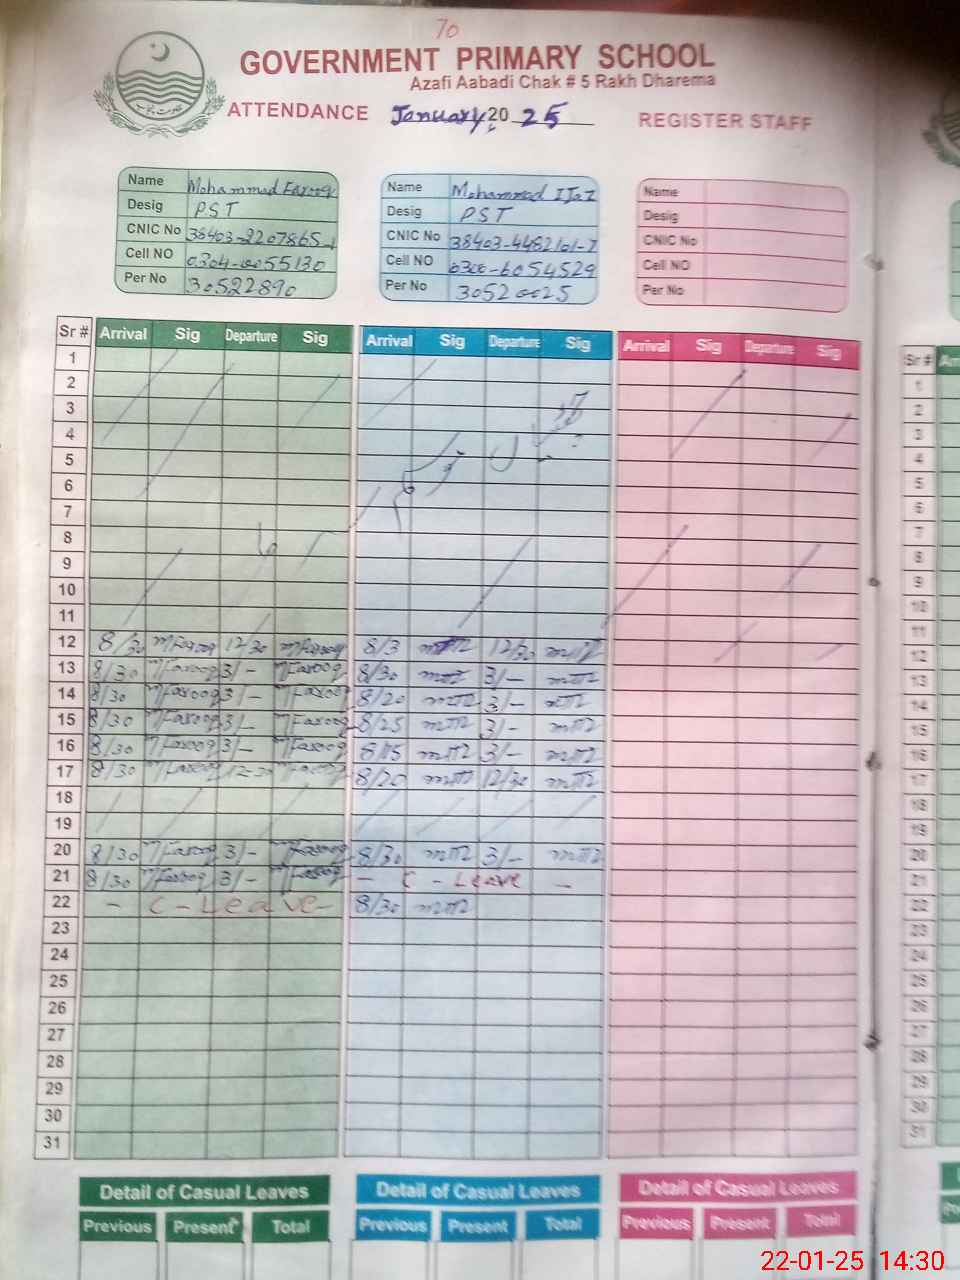 70
GOVERNMENT PRIMARY SCHOOL
Azafi Aabadi Chak # 5 Rakh Dharema
ATTENDANCE January 2025 REGISTER STAFF
Name Mohammad Farooq
Desig PST
CNIC No 38403-2207865-1
Cell NO 0304-0055130
Per No 30522890
Name Mohammad IJaz
Desig PST
CNIC No 38403-4482101-7
Cell NO 0300-6054529
Per No 30520025
Name
Desig
CNIC No
Cell NO
Per No
Sr # Arrival Sig Departure Sig Arrival Sig Departure Sig Arrival Sig Departure Sig
1
2
3
4
5
6
7
8
9
10
11
12 8/30 MFarooq 12/30 MFarooq 8/3 12/30
13 8/30 MFarooq 3/- MFarooq 8/30 3/-
14 8/30 MFarooq 3/- MFarooq 8/20 3/-
15 8/30 MFarooq 3/- MFarooq 8/25 3/-
16 8/30 MFarooq 3/- MFarooq 8/15 3/-
17 8/30 MFarooq 12-30 MFarooq 8/20 12/30
18
19
20 8/30 MFarooq 3/- MFarooq 8/30 3/-
21 8/30 MFarooq 3/- MFarooq - C - Leave -
22 - C - Leave - 8/30
23
24
25
26
27
28
29
30
31
Sr #
1
2
3
4
5
6
7
8
9
10
11
12
13
14
15
16
17
18
19
20
21
22
23
24
25
26
27
28
29
30
31
Detail of Casual Leaves Detail of Casual Leaves Detail of Casual Leaves
Previous Present Total Previous Present Total Previous Present Total
22-01-25 14:30